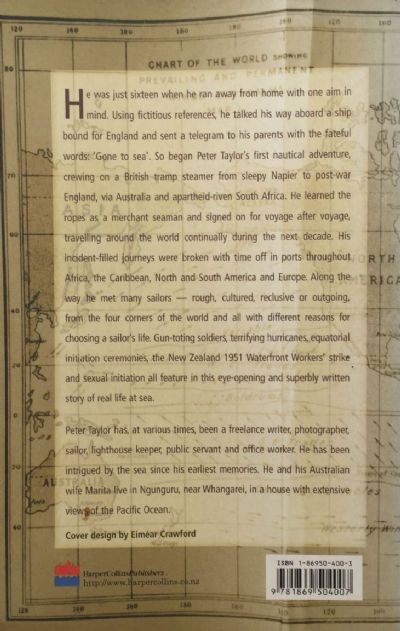 120
160
160
120
120
160
80
CHART OF THE WORLD SHOWING
PREVAILING AND PERMANENT
He was just sixteen when he ran away from home with one aim in
mind. Using fictitious references, he talked his way aboard a ship
bound for England and sent a telegram to his parents with the fateful
words: 'Gone to sea'. So began Peter Taylor's first nautical adventure,
crewing on a British tramp steamer from sleepy Napier to post-war
England, via Australia and apartheid-riven South Africa. He learned the
ropes as a merchant seaman and signed on for voyage after voyage,
travelling around the world continually during the next decade. His
incident-filled journeys were broken with time off in ports throughout
Africa, the Caribbean, North and South America and Europe. Along the
way he met many sailors — rough, cultured, reclusive or outgoing,
from the four corners of the world and all with different reasons for
choosing a sailor's life. Gun-toting soldiers, terrifying hurricanes, equatorial
initiation ceremonies, the New Zealand 1951 Waterfront Workers' strike
and sexual initiation all feature in this eye-opening and superbly written
story of real life at sea.
Peter Taylor has, at various times, been a freelance writer, photographer,
sailor, lighthouse keeper, public servant and office worker. He has been
intrigued by the sea since his earliest memories. He and his Australian
wife Marita live in Ngunguru, near Whangarei, in a house with extensive
views of the Pacific Ocean.
Cover design by Eiméar Crawford
ASIA
NORTH
AMERICA
AUSTRALIA
HarperCollinsPublishers
http://www.harpercollins.co.nz
ISBN 1-86950-400-3
9 781869 504007
120
160
160
120